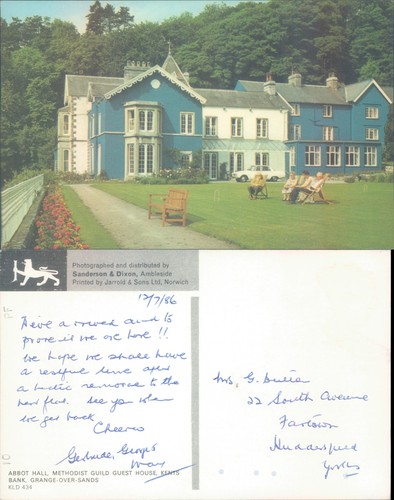 Photographed and distributed by
Sanderson & Dixon, Ambleside
Printed by Jarrold & Sons Ltd, Norwich
12/7/86
and to
prove it we are here!!
We hope we shall have
a restful time after
a hectic remove to the
new flat. See you when
we get back
Cheerio
Gertrude, George
Mrs. G.
22 South Avenue
Fartown
Huddersfield
Yorks
ABBOT HALL, METHODIST GUILD GUEST HOUSE, KENTS
BANK, GRANGE-OVER-SANDS
KLD 434